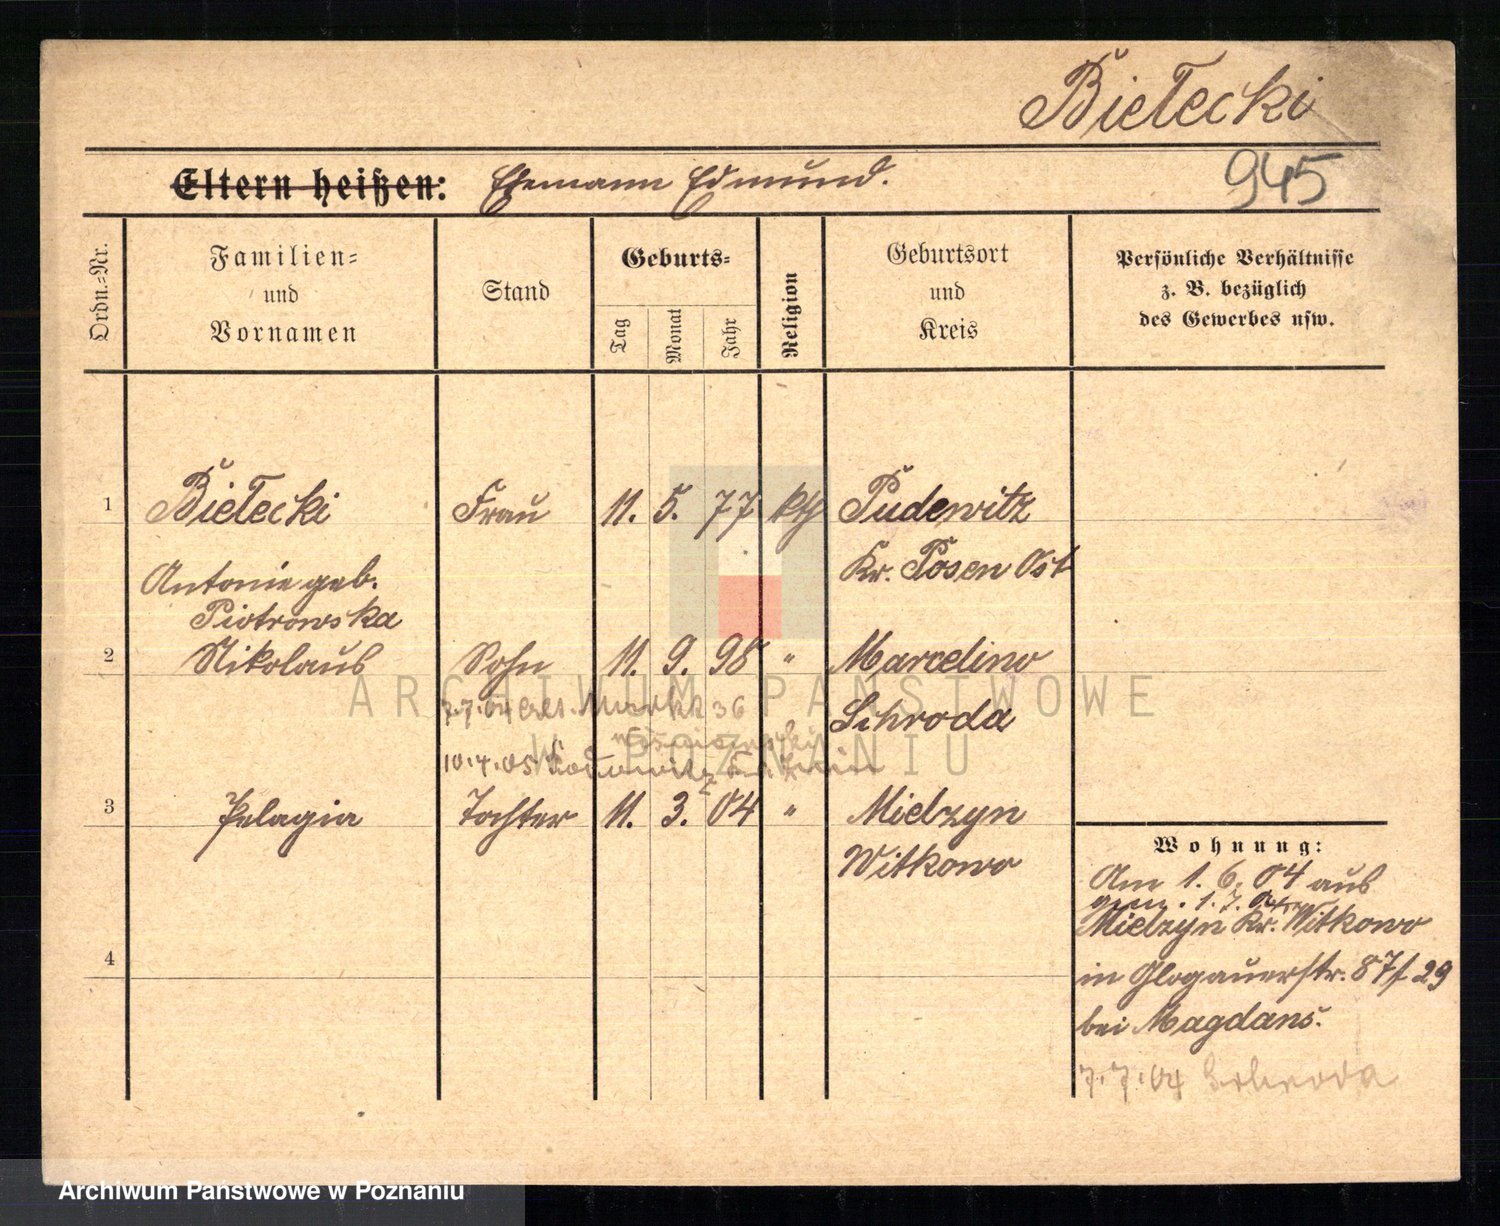 Bielecki
Eltern heißen: Ehemann Edmund.
945
Ordn.-Nr.
Familien-
und
Vornamen
Stand
Geburts-
Tag
Monat
Jahr
Religion
Geburtsort
und
Kreis
Persönliche Verhältnisse
z. B. bezüglich
des Gewerbes usw.
1 Bielecki Frau 11. 5. 77 kth Pudewitz
Kr. Posen Ost
Antonie geb.
Piotrowska
2 Nikolaus Sohn 11. 9. 98 " Marcelino
7.7.04 Markt 36
Schroda
10.4.05
3 Pelagia Tochter 11. 3. 04 " Mielzyn
Witkowo
Wohnung:
Am 1. 6. 04 aus
gem. 1. 7. 04
Mielzyn Kr. Witkowo
in Glogauerstr. 87 f 29
bei Magdans.
4
7.7.04 Schroda
ARCHIWUM PAŃSTWOWE
W POZNANIU
Archiwum Państwowe w Poznaniu